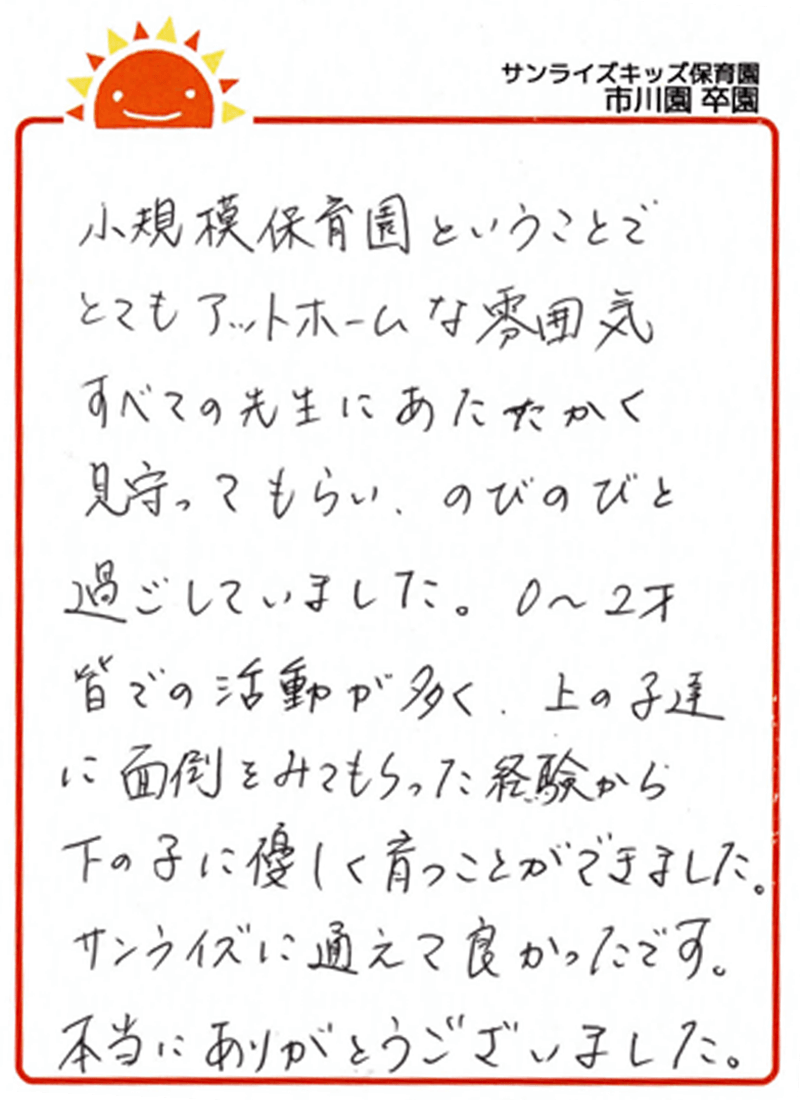 サンライズキッズ保育園
市川園 卒園
小規模保育園ということで
とてもアットホームな雰囲気
すべての先生にあたたかく
見守ってもらい、のびのびと
過ごしていました。0～2才
皆での活動が多く、上の子達
に面倒をみてもらった経験から
下の子に優しく育つことができました。
サンライズに通えて良かったです。
本当にありがとうございました。